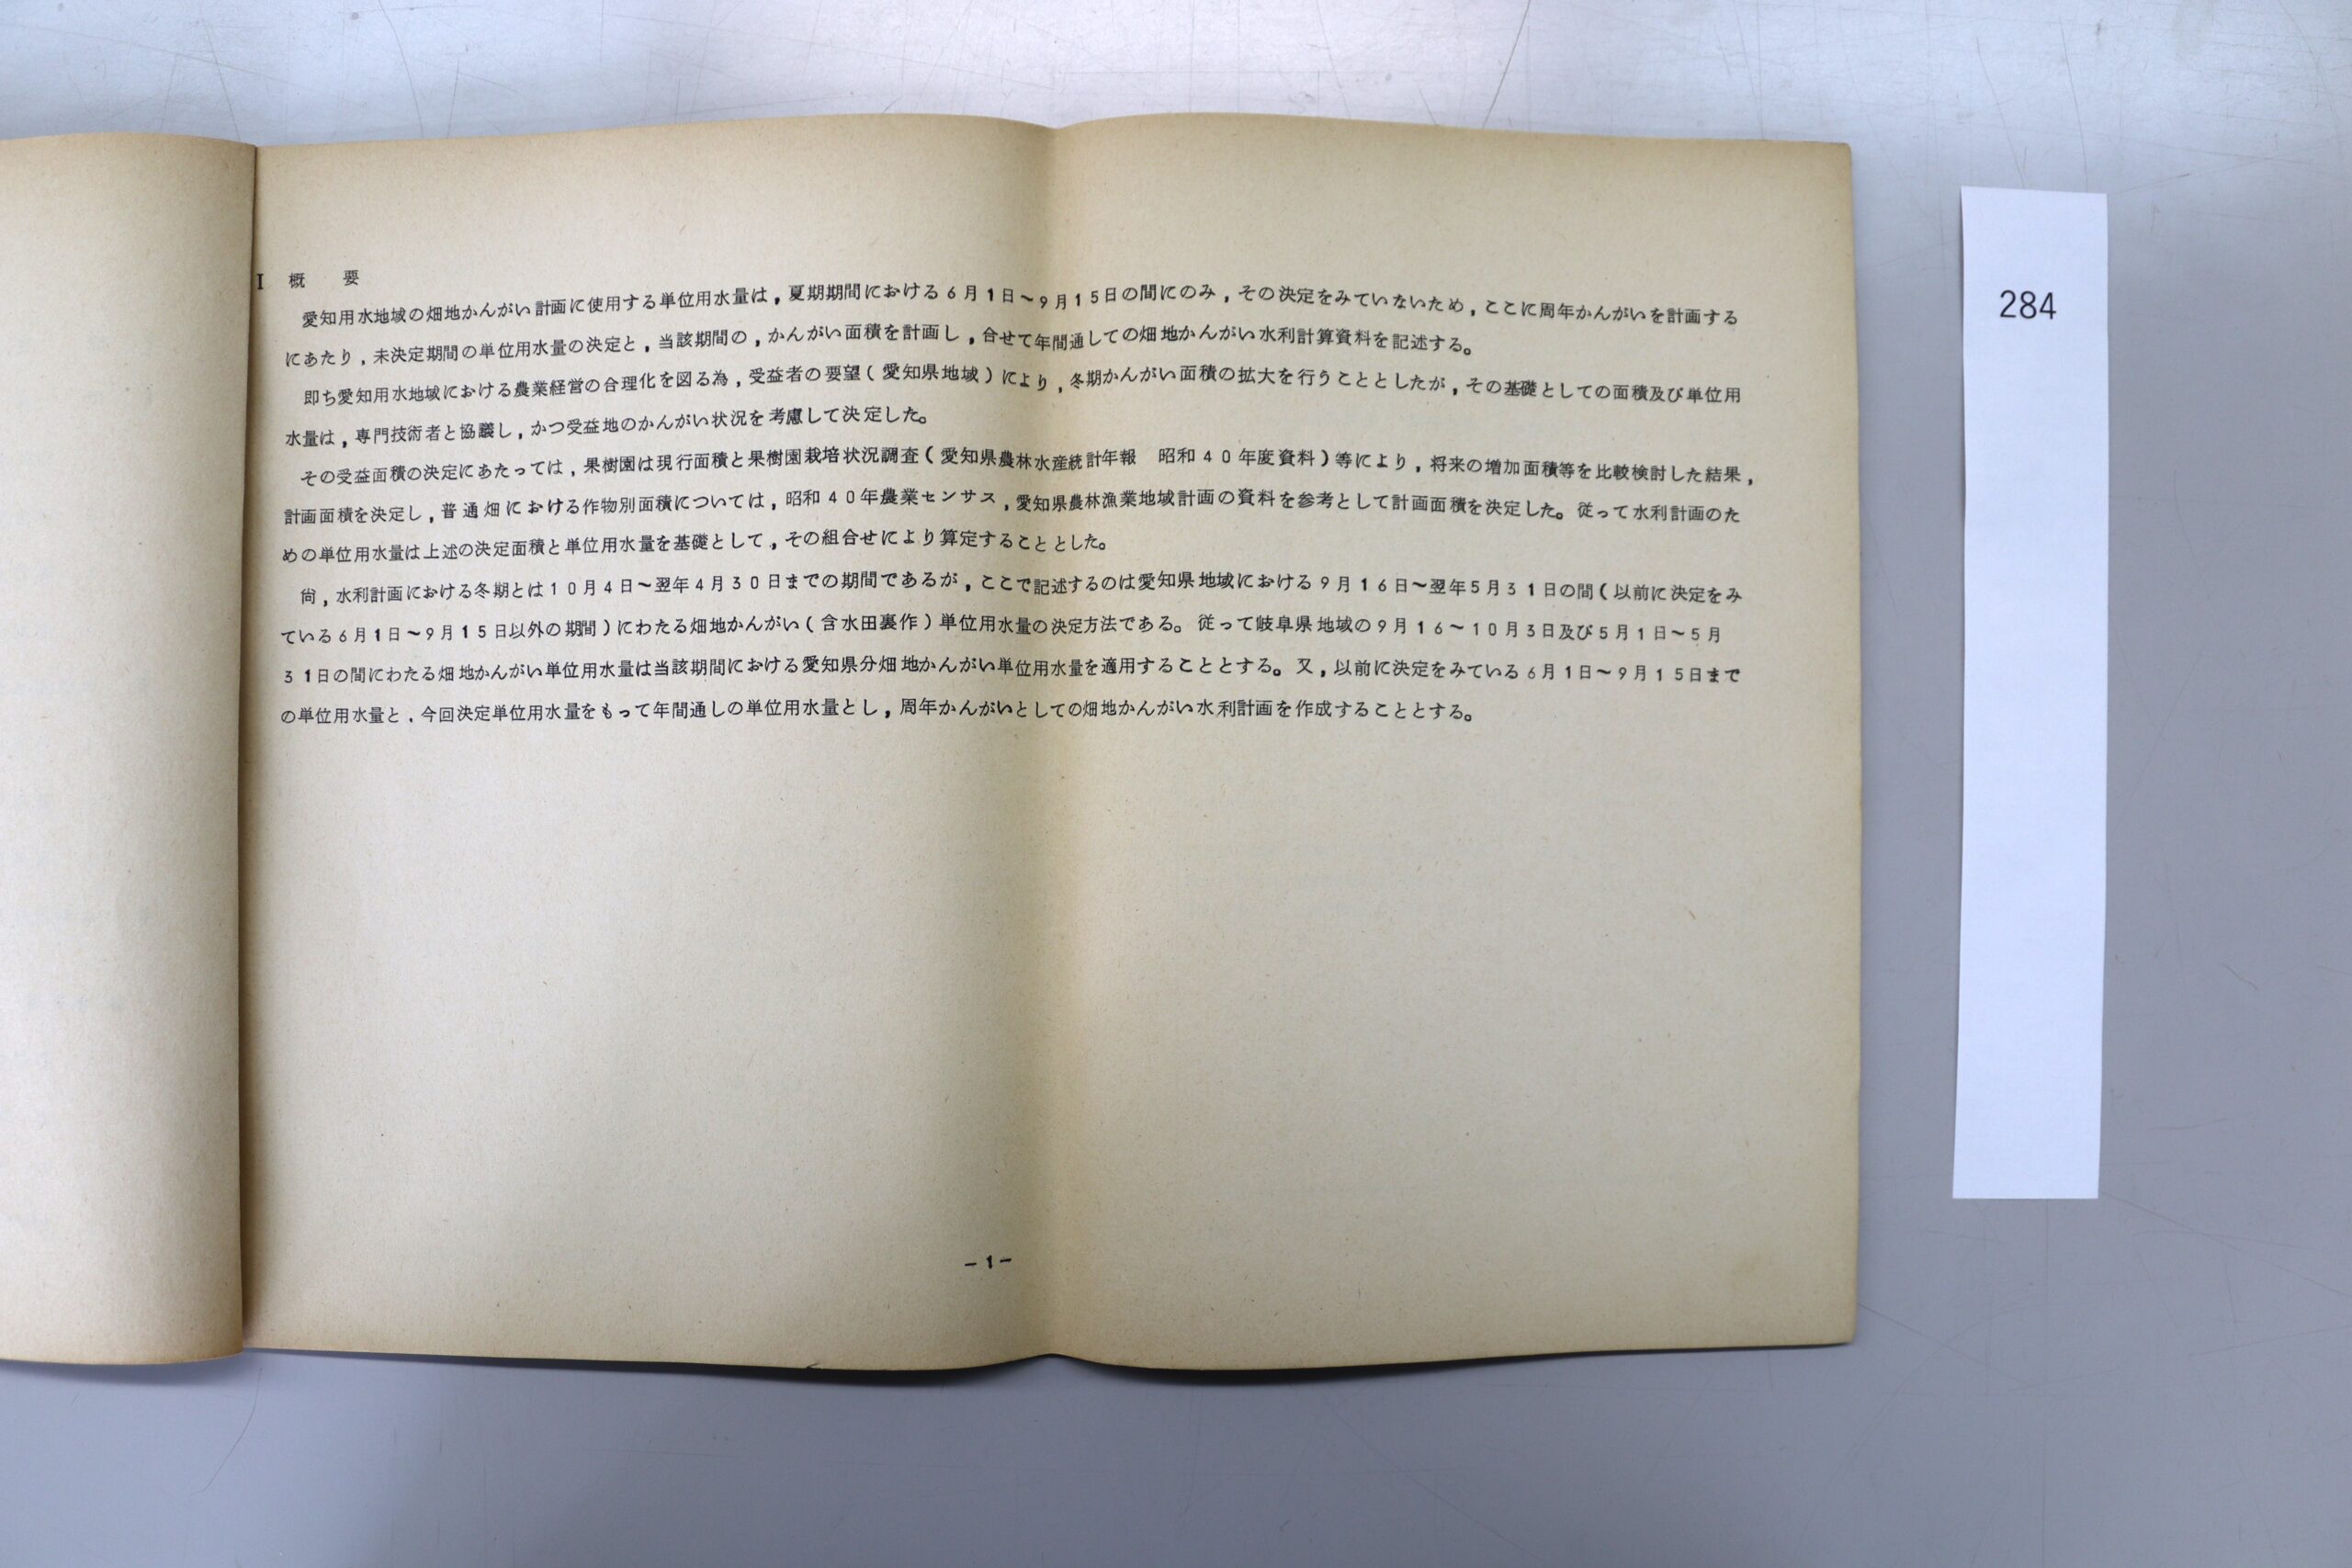 I 概　要
愛知用水地域の畑地かんがい計画に使用する単位用水量は，夏期期間における６月１日〜９月１５日の間にのみ，その決定をみていないため，ここに周年かんがいを計画する
にあたり，未決定期間の単位用水量の決定と，当該期間の，かんがい面積を計画し，合せて年間通しての畑地かんがい水利計算資料を記述する。
即ち愛知用水地域における農業経営の合理化を図る為，受益者の要望（愛知県地域）により，冬期かんがい面積の拡大を行うこととしたが，その基礎としての面積及び単位用
水量は，専門技術者と協議し，かつ受益地のかんがい状況を考慮して決定した。
その受益面積の決定にあたっては，果樹園は現行面積と果樹園栽培状況調査（愛知県農林水産統計年報　昭和４０年度資料）等により，将来の増加面積等を比較検討した結果，
計画面積を決定し，普通畑における作物別面積については，昭和４０年農業センサス，愛知県農林漁業地域計画の資料を参考として計画面積を決定した。従って水利計画のた
めの単位用水量は上述の決定面積と単位用水量を基礎として，その組合せにより算定することとした。
尙，水利計画における冬期とは１０月４日〜翌年４月３０日までの期間であるが，ここで記述するのは愛知県地域における９月１６日〜翌年５月３１日の間（以前に決定をみ
ている６月１日〜９月１５日以外の期間）にわたる畑地かんがい（含水田裏作）単位用水量の決定方法である。従って岐阜県地域の９月１６〜１０月３日及び５月１日〜５月
３１日の間にわたる畑地かんがい単位用水量は当該期間における愛知県分畑地かんがい単位用水量を適用することとする。又，以前に決定をみている６月１日〜９月１５日まで
の単位用水量と，今回決定単位用水量をもって年間通しの単位用水量とし，周年かんがいとしての畑地かんがい水利計画を作成することとする。
−１−
284